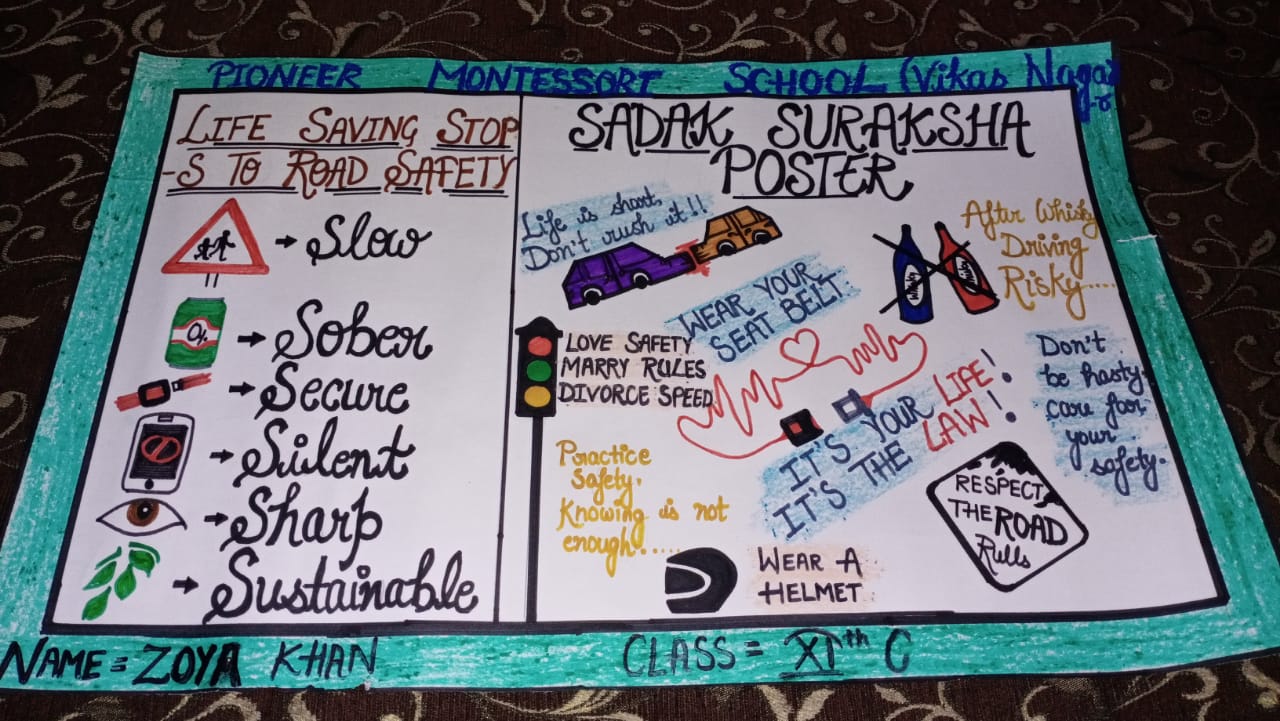 PIONEER MONTESSORI SCHOOL (Vikas Nagar
LIFE SAVING STOP
-S TO ROAD SAFETY
Slow
0%
Sober
Secure
Silent
Sharp
Sustainable
SADAK SURAKSHA
POSTER
Life is short
Don't rush it!!
WEAR YOUR
SEAT BELT.
Whisky
Whisky
After Whisky
Driving
Risky....
LOVE SAFETY
MARRY RULES
DIVORCE SPEED
IT'S YOUR LIFE!
IT'S THE LAW!
Don't
be hasty.
care for
your
safety.
Practice
Safety.
Knowing is not
enough.....
RESPECT
THE ROAD
Rulls
WEAR A
HELMET
NAME = ZOYA KHAN
CLASS = XIth C